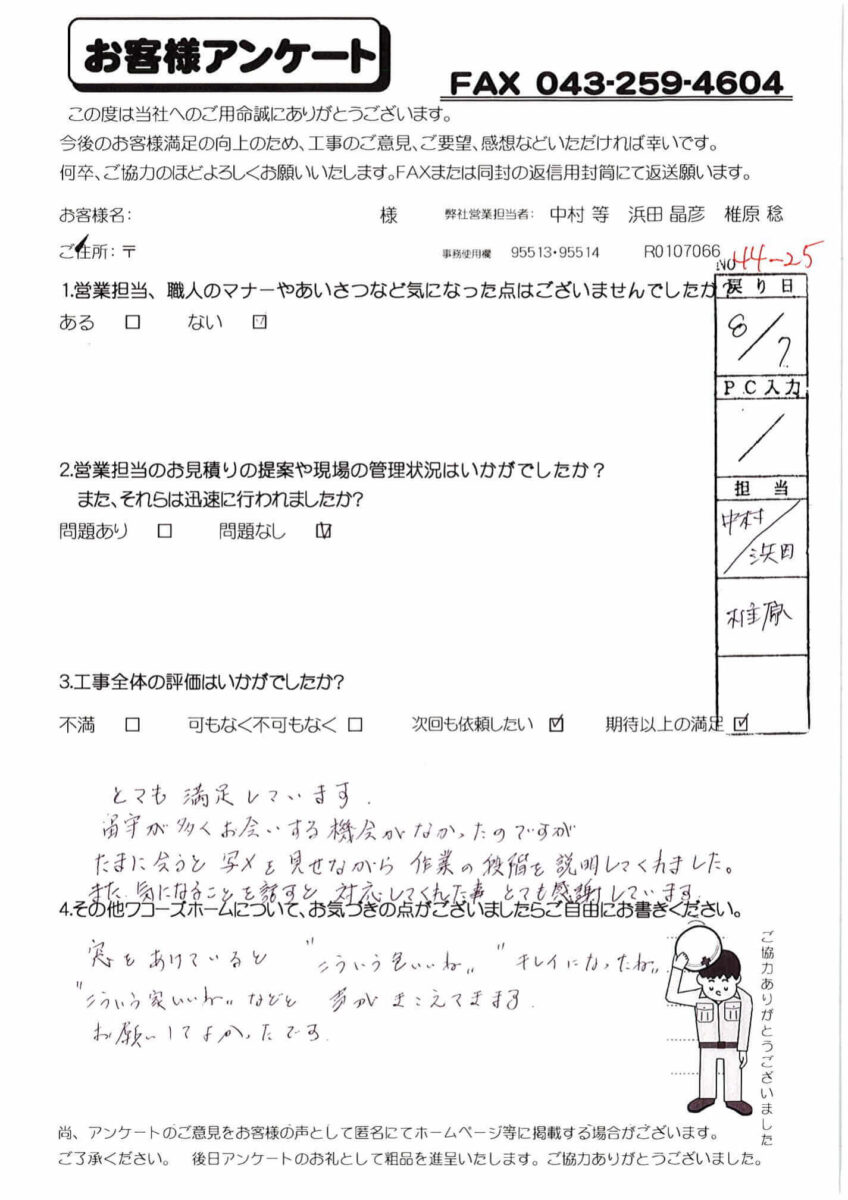 お客様アンケート
FAX 043-259-4604
この度は当社へのご用命誠にありがとうございます。
今後のお客様満足の向上のため、工事のご意見、ご要望、感想などいただければ幸いです。
何卒、ご協力のほどよろしくお願いいたします。FAXまたは同封の返信用封筒にて返送願います。
お客様名: 様 弊社営業担当者: 中村 等 浜田 晶彦 椎原 稔
ご住所: 〒 事務使用欄 95513・95514 R0107066
NO 44-25
1.営業担当、職人のマナーやあいさつなど気になった点はございませんでしたか?
ある □ ない ☑
戻り日
8/7
PC入力
/
2.営業担当のお見積りの提案や現場の管理状況はいかがでしたか?
また、それらは迅速に行われましたか?
問題あり □ 問題なし ☑
担当
中村/浜田
椎原
3.工事全体の評価はいかがでしたか?
不満 □ 可もなく不可もなく □ 次回も依頼したい ☑ 期待以上の満足 ☑
とても満足しています.
留守が多くお会いする機会がなかったのですが
たまに会うと写メを見せながら作業の段階を説明してくれました。
また、気になることを話すと対応してくれた事とても感謝しています.
4.その他ワコーズホームについて、お気づきの点がございましたらご自由にお書きください。
窓をあけていると "こういう色いいね" "キレイになったね"
"こういう家いいね"などと 声がきこえてきます.
お願いしてよかったです.
ご協力ありがとうございました
尚、アンケートのご意見をお客様の声として匿名にてホームページ等に掲載する場合がございます。
ご了承ください。 後日アンケートのお礼として粗品を進呈いたします。ご協力ありがとうございました。